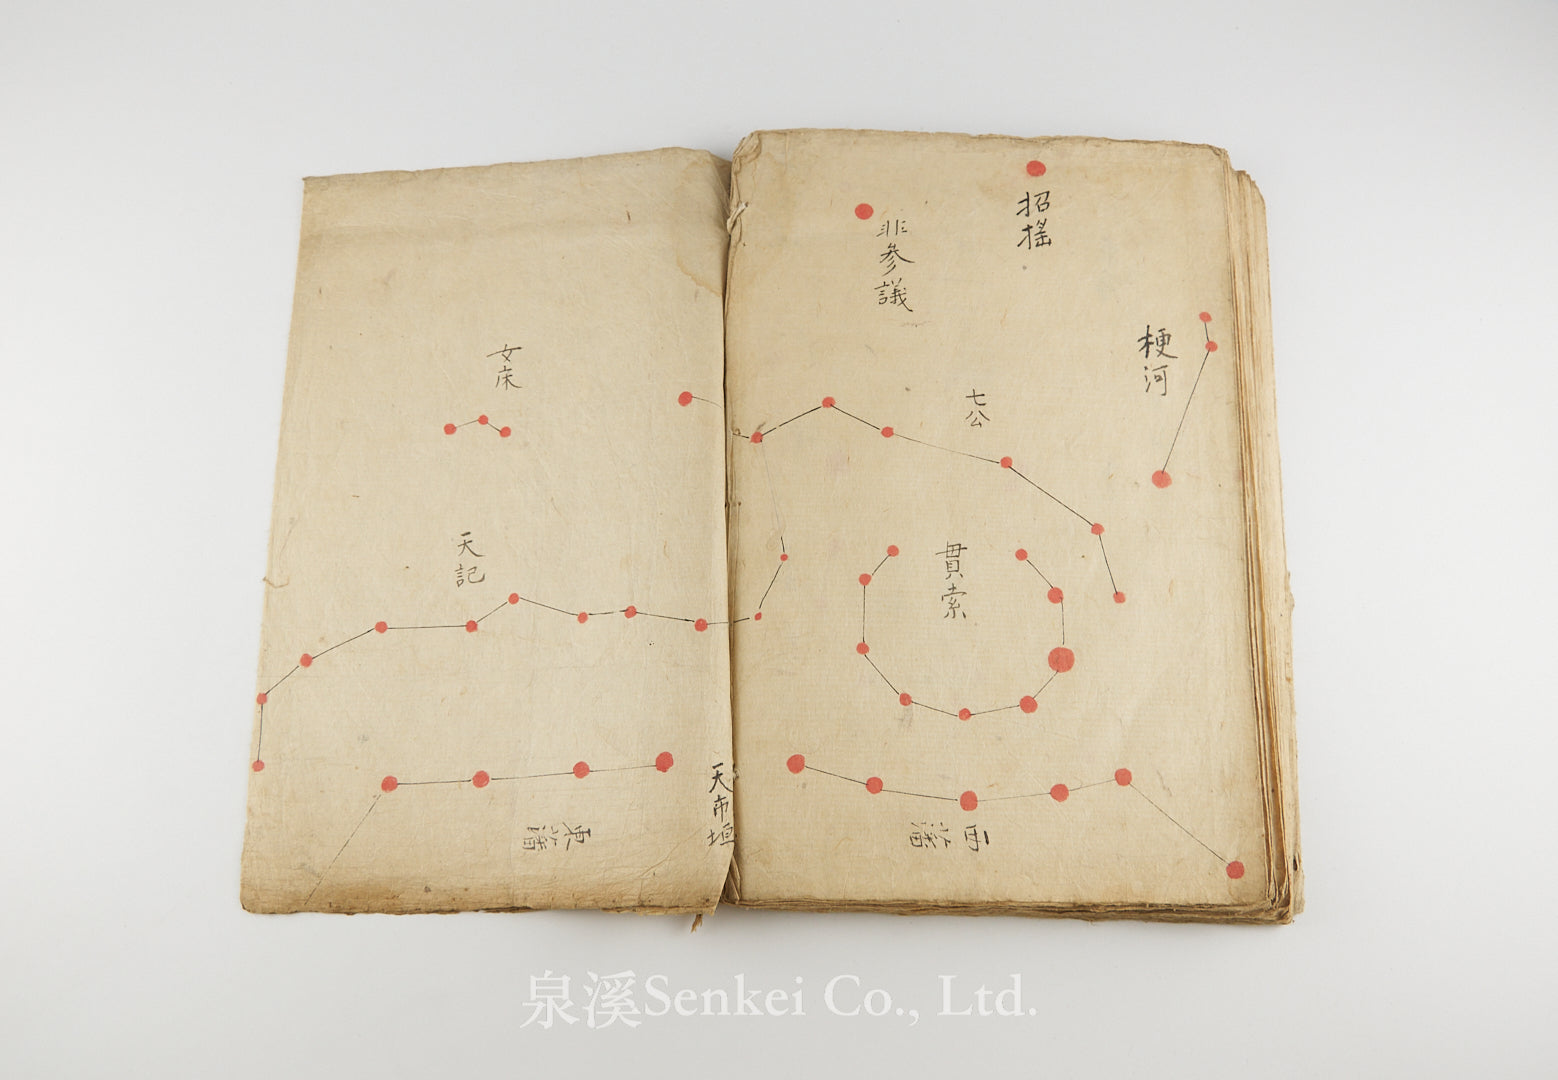 招搖
梗河
非參議
七公
貫索
西蕃
天市垣
女床
天記
東蕃
泉溪Senkei Co., Ltd.